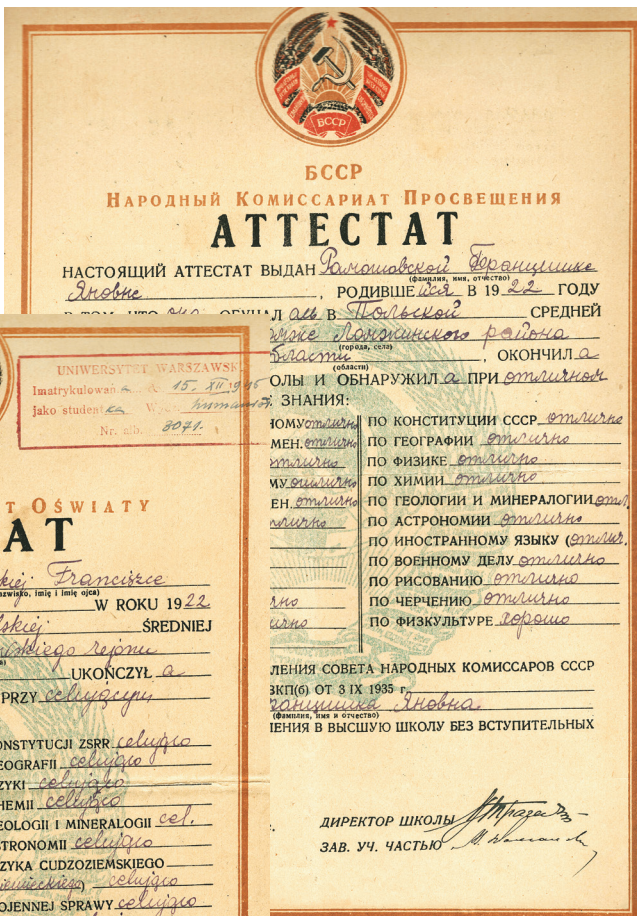 БССР
БССР
НАРОДНЫЙ КОМИССАРИАТ ПРОСВЕЩЕНИЯ
АТТЕСТАТ
НАСТОЯЩИЙ АТТЕСТАТ ВЫДАН Францишке
(фамилия, имя, отчество)
Яновне, РОДИВШЕЙСЯ В 1922 ГОДУ
она ОБУЧАЛАСЬ В Польской СРЕДНЕЙ
Ломжинского района
(города, села)
области, ОКОНЧИЛ а
(области)
ОЛЫ И ОБНАРУЖИЛ а ПРИ отличном
ЗНАНИЯ:
НОМУ отлично
МЕН. отлично
отлично
МУ отлично
ЕН. отлично
отлично
ПО КОНСТИТУЦИИ СССР отлично
ПО ГЕОГРАФИИ отлично
ПО ФИЗИКЕ отлично
ПО ХИМИИ отлично
ПО ГЕОЛОГИИ И МИНЕРАЛОГИИ отл
ПО АСТРОНОМИИ отлично
ПО ИНОСТРАННОМУ ЯЗЫКУ (отлич.
ПО ВОЕННОМУ ДЕЛУ отлично
ПО РИСОВАНИЮ отлично
ПО ЧЕРЧЕНИЮ отлично
ПО ФИЗКУЛЬТУРЕ хорошо
ЛЕНИЯ СОВЕТА НАРОДНЫХ КОМИССАРОВ СССР
ВКП(б) ОТ 3 IX 1935 г.
ранцишка Яновна
(фамилия, имя и отчество)
ЕНИЯ В ВЫСШУЮ ШКОЛУ БЕЗ ВСТУПИТЕЛЬНЫХ
ДИРЕКТОР ШКОЛЫ
ЗАВ. УЧ. ЧАСТЬЮ
UNIWERSYTET WARSZAWSK
Imatrykulowan a 15. XII 1945
jako student ka humanist.
Nr. alb. 3071.
T OŚWIATY
AT
kiej Franciszce
azwisko, imię i imię ojca)
W ROKU 1922
lskiej ŚREDNIEJ
skiego rejonu
UKOŃCZYŁ a
PRZY celującym
ONSTYTUCJI ZSRR celująco
EOGRAFII celująco
ZYKI celująco
HEMII celująco
EOLOGII I MINERALOGII cel.
STRONOMII celująco
ZYKA CUDZOZIEMSKIEGO
niemieckiego) celująco
OJENNEJ SPRAWY celująco